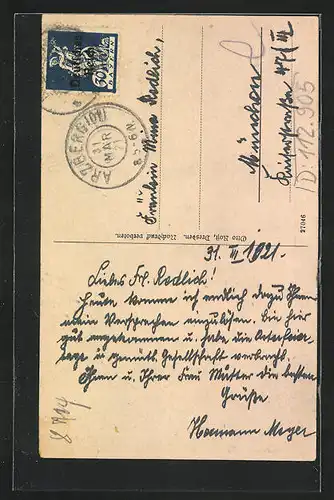 Deutsches Reich
60
BAYERN
ARZBERG (Ofr.)
31 MAR 21
Fräulein Minna Redlich,
München
Kaiserstraße 47/III
D 112.905
Otto Roß, Dresden. Nachdruck verboten.
27046
31. III 1921.
Liebes Frl. Redlich!
Heute komme ich endlich dazu Ihnen
mein Versprechen einzulösen. Bin hier
gut angekommen u. habe die Osterfeier-
tage i. gemütl. Gesellschaft verbracht.
Ihnen u. Ihrer Frau Mutter die besten
Grüße
Hermann Meyer